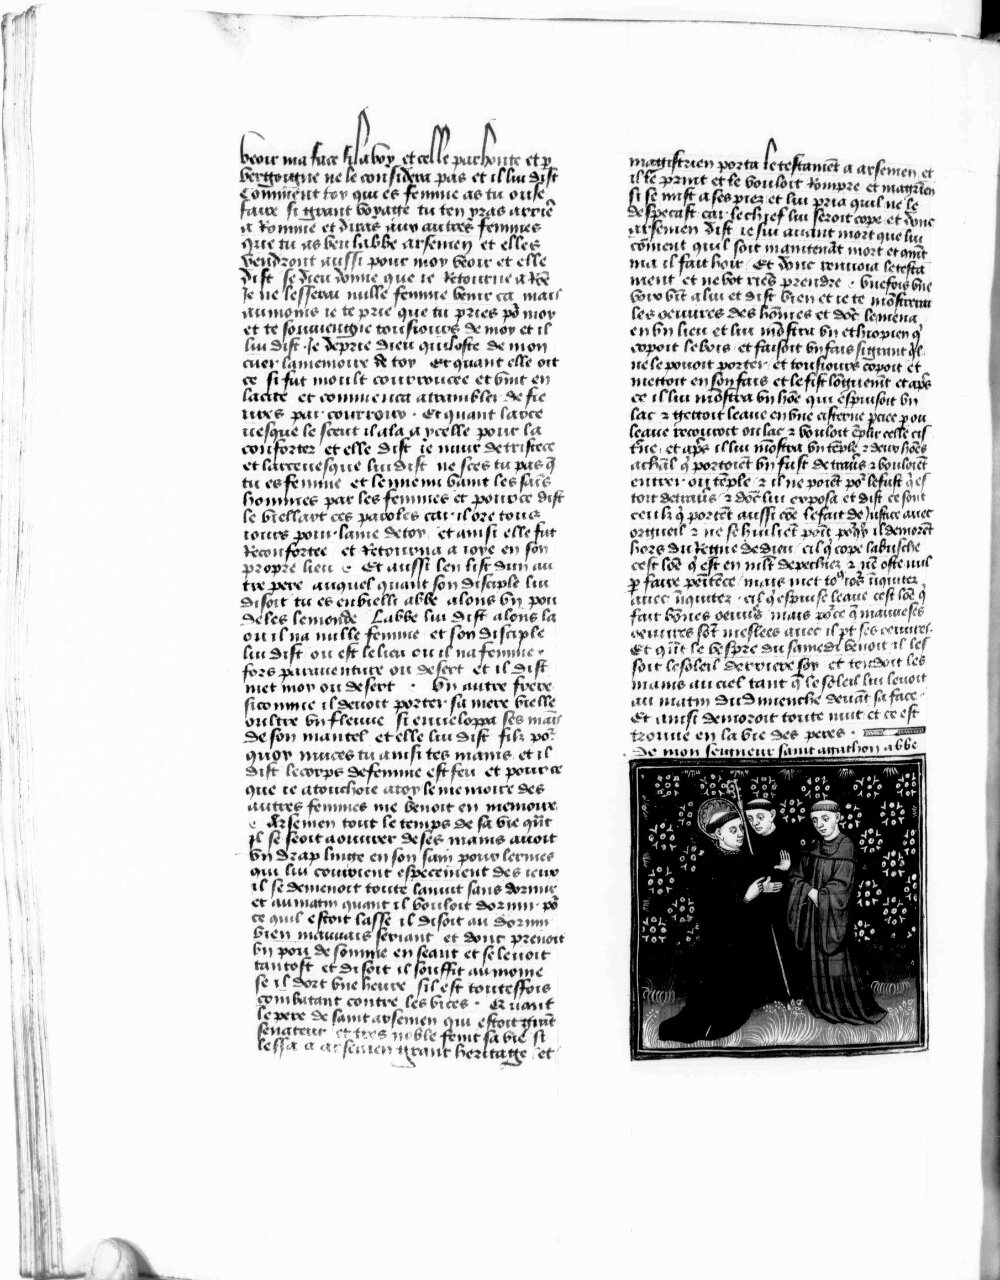 veoir ma face si la voy et celle par honte et p
vergoigne ne le considera pas et il lui dist
Comment toy qui es femme as tu ouse
faire si grant voyage tu ten yras arrie
a Romme et diras aux autres femmes
que tu as veu labbe arsemen et elles
vendront aussi pour moy veoir et elle
dist se dieu donne que ie Retourne a Rōe
Je ne lesserai nulle femme venir ca mais
au moins ie te prie que tu pries po moy
et te souviengne tousiours de moy et il
lui dist Je deprie dieu quil oste de mon
cuer la memoire de toy Et quant elle oit
ce si fut moult courroucee et vint en
la cite et commenca a trambler de fie
vres par courroux Et quant larce
vesque le sceut il ala a ycelle pour la
conforter et elle dist ie muir de tristece
et larcevesque lui dist ne sces tu pas q̄
tu es femme et lennemi vaint les sains
hommes par les femmes et pource dist
le viellart ces paroles car il ore tous
iours pour lame de toy et ainsi elle fut
Reconfortee et Retourna a ioye en son
propre lieu Et aussi len list dun au
tre pere auquel quant son disciple lui
disoit tu es envielli abbe alons vn pou
deles le monde Labbe lui dist alons la
ou il na nulle femme et son disciple
lui dist ou est le lieu ou il na femme
fors paraventure ou desert et il dist
met moy ou desert Vn autre frere
si comme il devoit porter sa mere vielle
oultre vn fleuve si enveloppa ses mais
de son mantel et elle lui dist filz por
quoy muces tu ainsi tes mains et il
dist le corps de femme est feu et pource
que ie atouchoie a toy le memoire des
autres femmes me venoit en memoire
Arsemen tout le temps de sa vie qūt
il se seoit a ouvrer de ses mains avoit
vn drap linge en son sain pour lermes
qui lui couroient especement des ieux
il se demenoit toute la nuit sans dormir
et au matin quant il vouloit dormir po
ce quil estoit lasse il disoit au dormir
vien mauvais seriant et dont prenoit
vn pou de somme en seant et se levoit
tantost et disoit il souffit au moine
se il dort vne heure sil est toutesfois
combatant contre les vices Quant
le pere de saint arsemen qui estoit grāt
senateur et tres noble fenit sa vie si
lessa a arsemen grant heritage et
magistrien porta le testament a arsemen et
il le print et le vouloit Rompre et magrien
si se mist a ses piez et lui pria quil ne le
despecast car le chief lui seroit cope et donc
arsemen dist ie fui avant mort que lui
coment quil soit maintenāt mort et cōmt
ma il fait hoir Et donc renvoia le testa
ment et ne vot riēs prendre vnefois vne
voix vīt a lui et dist vien et ie te mōstrerai
les oeuvres des hōmes et dōc le mena
en vn lieu et lui mōstra vn ethiopien q̇
copoit le bois et faisoit vn fais si grant q̇l
ne le pouoit porter et tousiours copoit et
mettoit en son fais et le fist lōguemēt et ap̄s
ce il lui mōstra vn hōe qui espuisoit vn
lac & gettoit leaue en vne cisterne p̄cee p̄ ou
leaue recouroit ou lac & vouloit ēplir celle cis
t̄ne et ap̄s il lui mōstra vn tēple & deux hōes
a chevāl q̇ portoient vn fust de travers & vouloiēt
entrer ou tēple & il ne poiēt por le fust q̇ es
toit de travers & dōc lui exposa et dist ce sont
ceulx q̇ portēt aussi cōe le fait de Justice avec
orgueil & ne se huiliēt poīt porq̇y il demorēt
hors du Regne de dieu cil q̇ cope la busche
cest lōe q̇ est en mlt de pechiez & nē oste nul
p̄ faire penitence mais met toiors īiquitez
avec īiquitez cil q̇ espuise leaue cest lōe q̇
fait bōnes oeuvres mais porce q̄ mauveses
oeuvres sōt meslees avec il pt ses oeuvres
Et qūt le vespre du samedi venoit il les
soit le soleil derriere soy et tendoit les
mains au ciel tant q̄ le soleil lui levoit
au matin du dimenche devāt sa face
Et ainsi demoroit toute nuit et ce est
trouve en la vie des peres
De mon seigneur saint agathon abbe